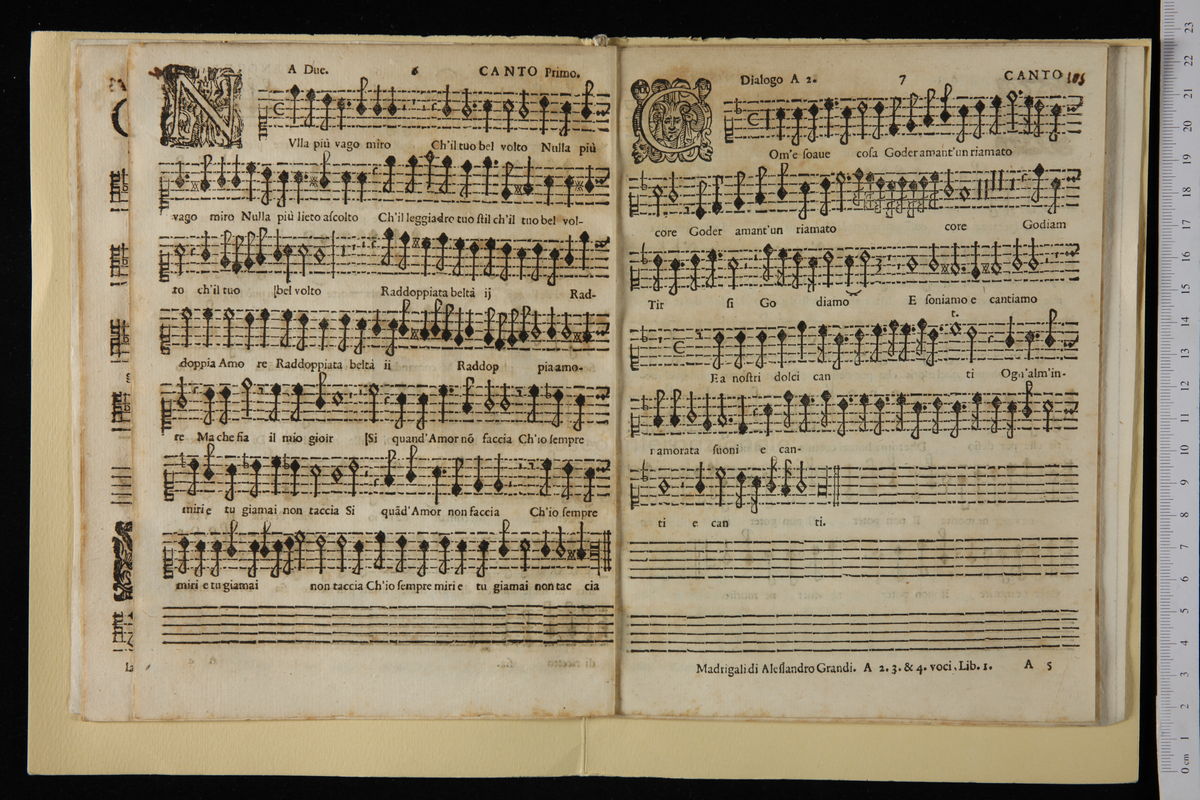 A Due. 6 CANTO Primo.
N
Vlla più vago miro Ch'il tuo bel volto Nulla più
vago miro Nulla più lieto ascolto Ch'il leggiadro tuo stil ch'il tuo bel vol-
to ch'il tuo bel volto Raddoppiata beltà ij Rad-
doppia Amo re Raddoppiata beltà ii Raddop pia amo-
re Ma che fia il mio gioir Si quand'Amor nõ faccia Ch'io sempre
miri e tu giamai non taccia Si quãd'Amor non faccia Ch'io sempre
miri e tu giamai non taccia Ch'io sempre miri e tu giamai non tac cia
Dialogo A 2. 7 CANTO
C
Om'e soaue cosa Goder amant'un riamato
core Goder amant'un riamato core Godiam
Tir si Go diamo E soniamo e cantiamo
t.
E a nostri dolci can ti Ogn'alm'in-
namorata suoni e can-
ti e can ti.
Madrigali di Alessandro Grandi. A 2. 3. & 4. voci. Lib. 1. A 5
23
22
21
20
19
18
17
16
15
14
13
12
11
10
9
8
7
6
5
4
3
2
1
0 cm